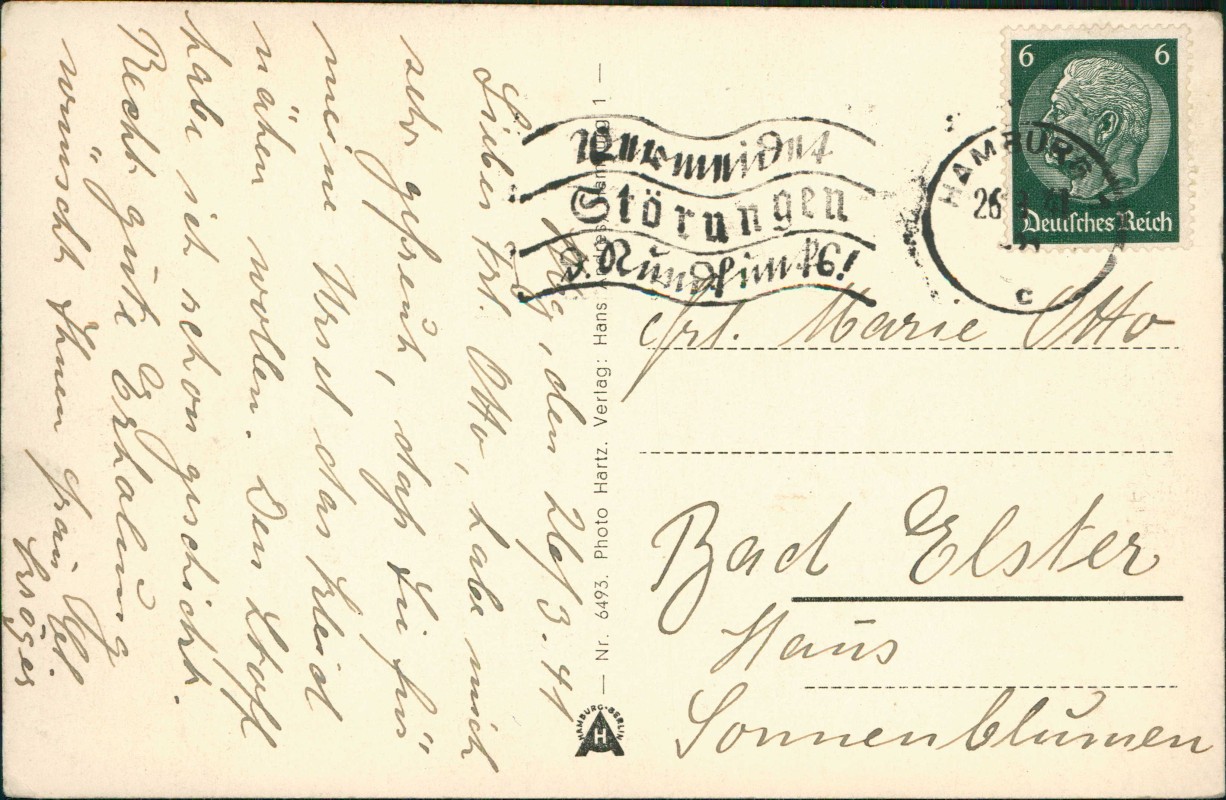 Hbg, den 26/3. 41
Lieber Frl. Otto, habe mich
sehr gefreut, daß Sie für
meine Ursel das Kleid
nähen wollen. Den Stoff
habe ich schon geschickt.
Recht gute Erholung
wünscht Ihnen Frau
Kröger
— Nr. 6493. Photo Hartz. Verlag: Hans
g 1 —
HAMBURG-BERLIN
HA
Vermeidet
Störungen
d. Rundfunks!
HAMBURG
26
41
c
6 6
Deutsches Reich
Frl. Marie Otto
Bad Elster
Haus
Sonnenblumen